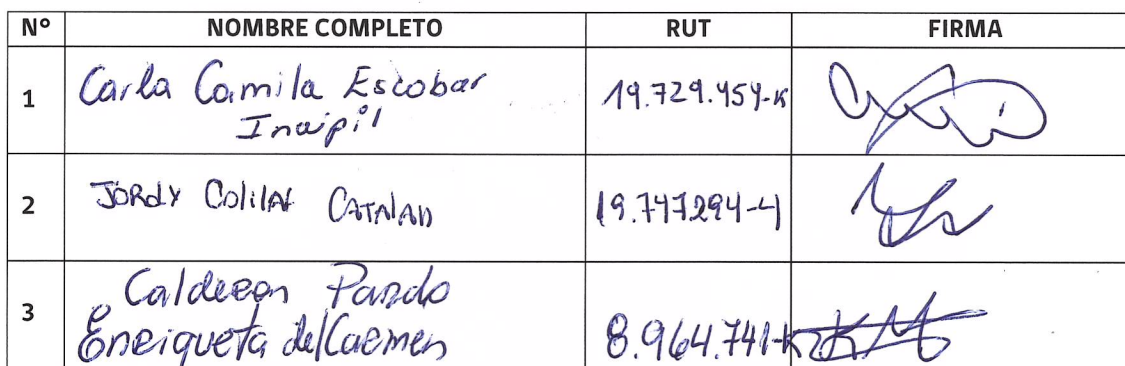 N° NOMBRE COMPLETO RUT FIRMA
1 Carla Camila Escobar 19.729.454-K
Inaipil
2 JORdY COlilAf CATAlAN 19.747.294-4
3 Calderon Pardo
Enriqueta del Carmen 8.964.741-K